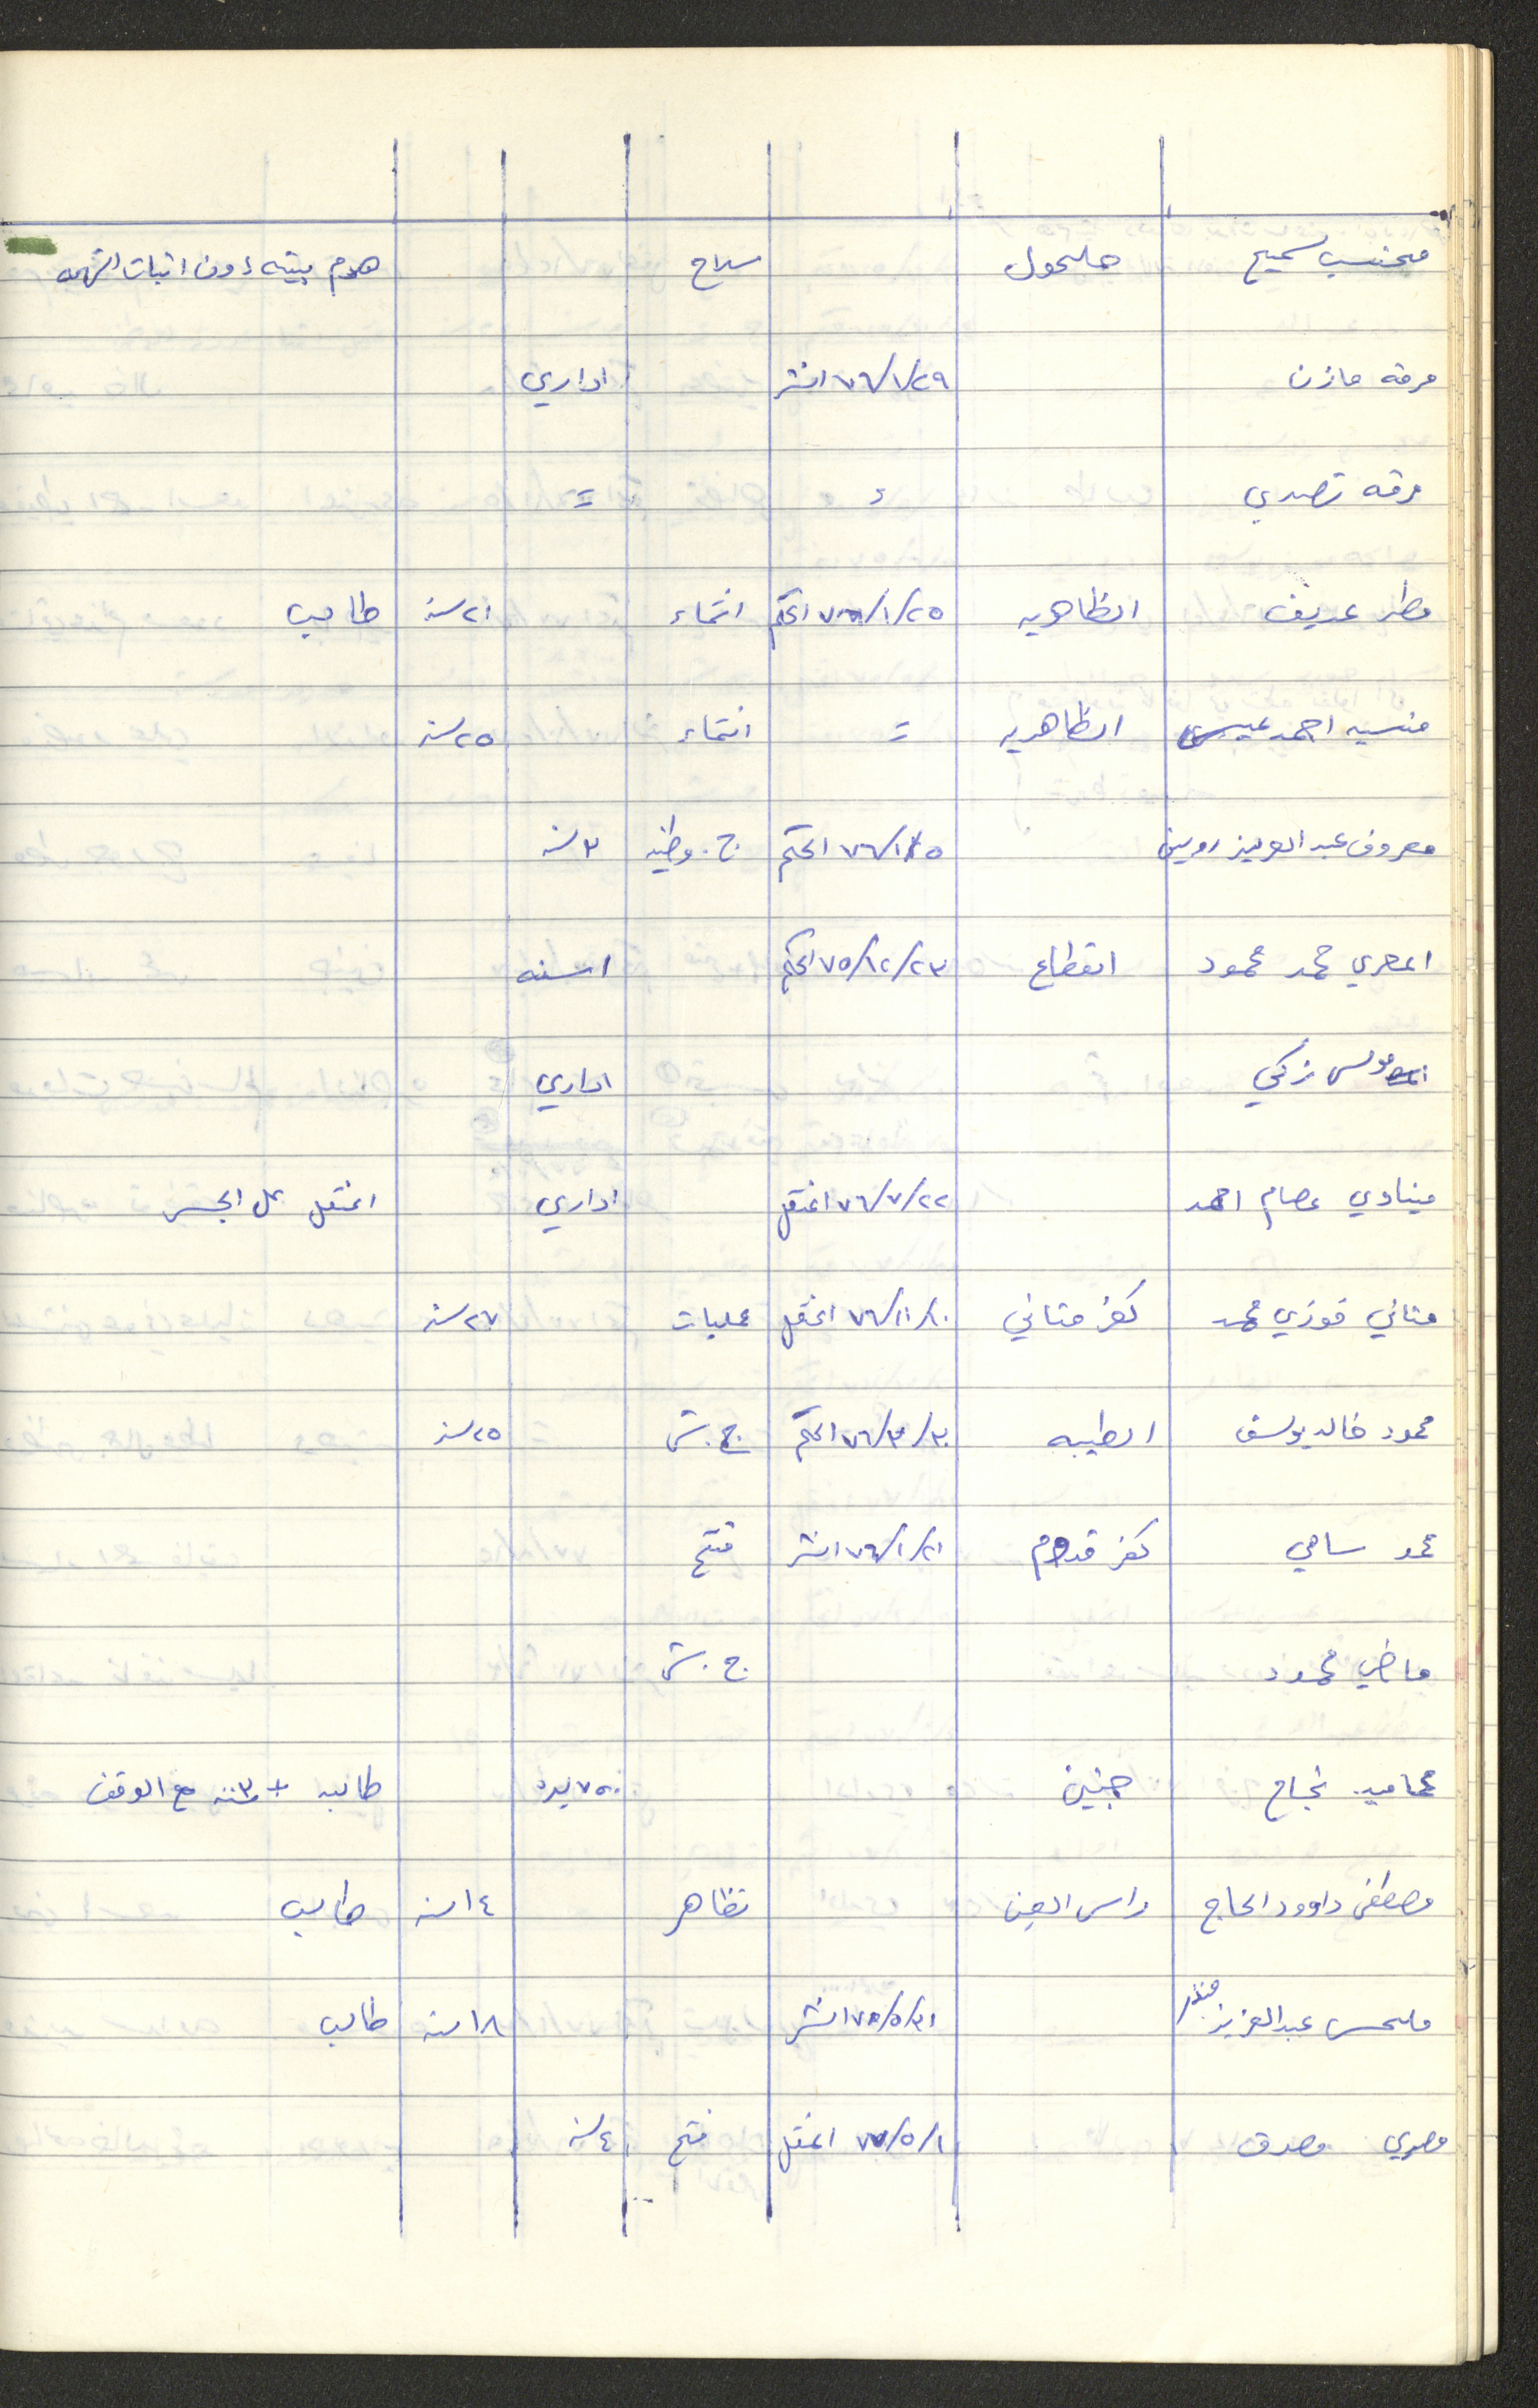 محتسب سميح حلحول سلاح هدم بيته دون اثبات التهمه
مرقه مازن ٧٦/١/٢٩ انشر اداري
مرقه تصدي = =
مطر عريف الظاهريه ٧٦/١/٢٥ الحكم انتماء ٢١ سنه طالب
منسيه احمد عيسى الظاهريه = انتماء ٢٥ سنه
معروف عبد العزيز درويش ٧٦/١/٥ الحكم ج. وطنيه ٣ سنه
المصري محمد محمود القطاع ٧٥/١٢/٢٣ الحكم ١ سنه
موسى زكي اداري
ميناوي عصام احمد ٧٦/٧/٢٢ اعتقل اداري اعتقل على الجسر
مناني فوزي محمد كفر مناني ٧٦/١١/١٠ اعتقل عمليات ٢٧ سنه
محمود خالد يوسف الطيبه ٧٦/٣/٣٠ الحكم ج. ش ٢٥ سنه
محمد سامي كفر قدوم ٧٦/١/٢١ انشر فتح
ماضي محمود ج. ش
محاميد نجاح جنين ٧٥٠٠ ليره طالبه + ٣ سنه مع الوقف
مصطفى داوود الحاج راس العين تظاهر ١٤ سنه طالب
ملحس عبد العزيز منذر ٧٥/٥/٣١ انشر ١٨ سنه طالب
مصري مصدق ٧٧/٥/١ اعتقل فتح ٤ سنه